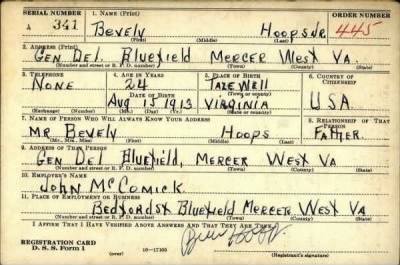 SERIAL NUMBER 1. NAME (Print) ORDER NUMBER
A 341 Bevely Hoops Jr 445
(First) (Middle) (Last)
2. ADDRESS (Print)
Gen Del Bluefield Mercer West Va.
(Number and street or R. F. D. number) (Town) (County) (State)
3. TELEPHONE 4. AGE IN YEARS 5. PLACE OF BIRTH 6. COUNTRY OF CITIZENSHIP
None Tazewell
DATE OF BIRTH (Town or county)
Aug 15 1913 Virginia U.S.A.
(Exchange) (Number) (Mo.) (Day) (Yr.) (State or country)
7. NAME OF PERSON WHO WILL ALWAYS KNOW YOUR ADDRESS 8. RELATIONSHIP OF THAT PERSON
Mr. Bevely Hoops Father.
(Mr., Mrs., Miss) (First) (Middle) (Last)
9. ADDRESS OF THAT PERSON
Gen Del Bluefield, Mercer West Va
(Number and street or R. F. D. number) (Town) (County) (State)
10. EMPLOYER'S NAME
John McComick
11. PLACE OF EMPLOYMENT OR BUSINESS
Bedford St Bluefield Mercer West Va
(Number and street or R. F. D. number) (Town) (County) (State)
I AFFIRM THAT I HAVE VERIFIED ABOVE ANSWERS AND THAT THEY ARE TRUE.
REGISTRATION CARD
D. S. S. Form 1 (over) 16-17105 (Registrant's signature)